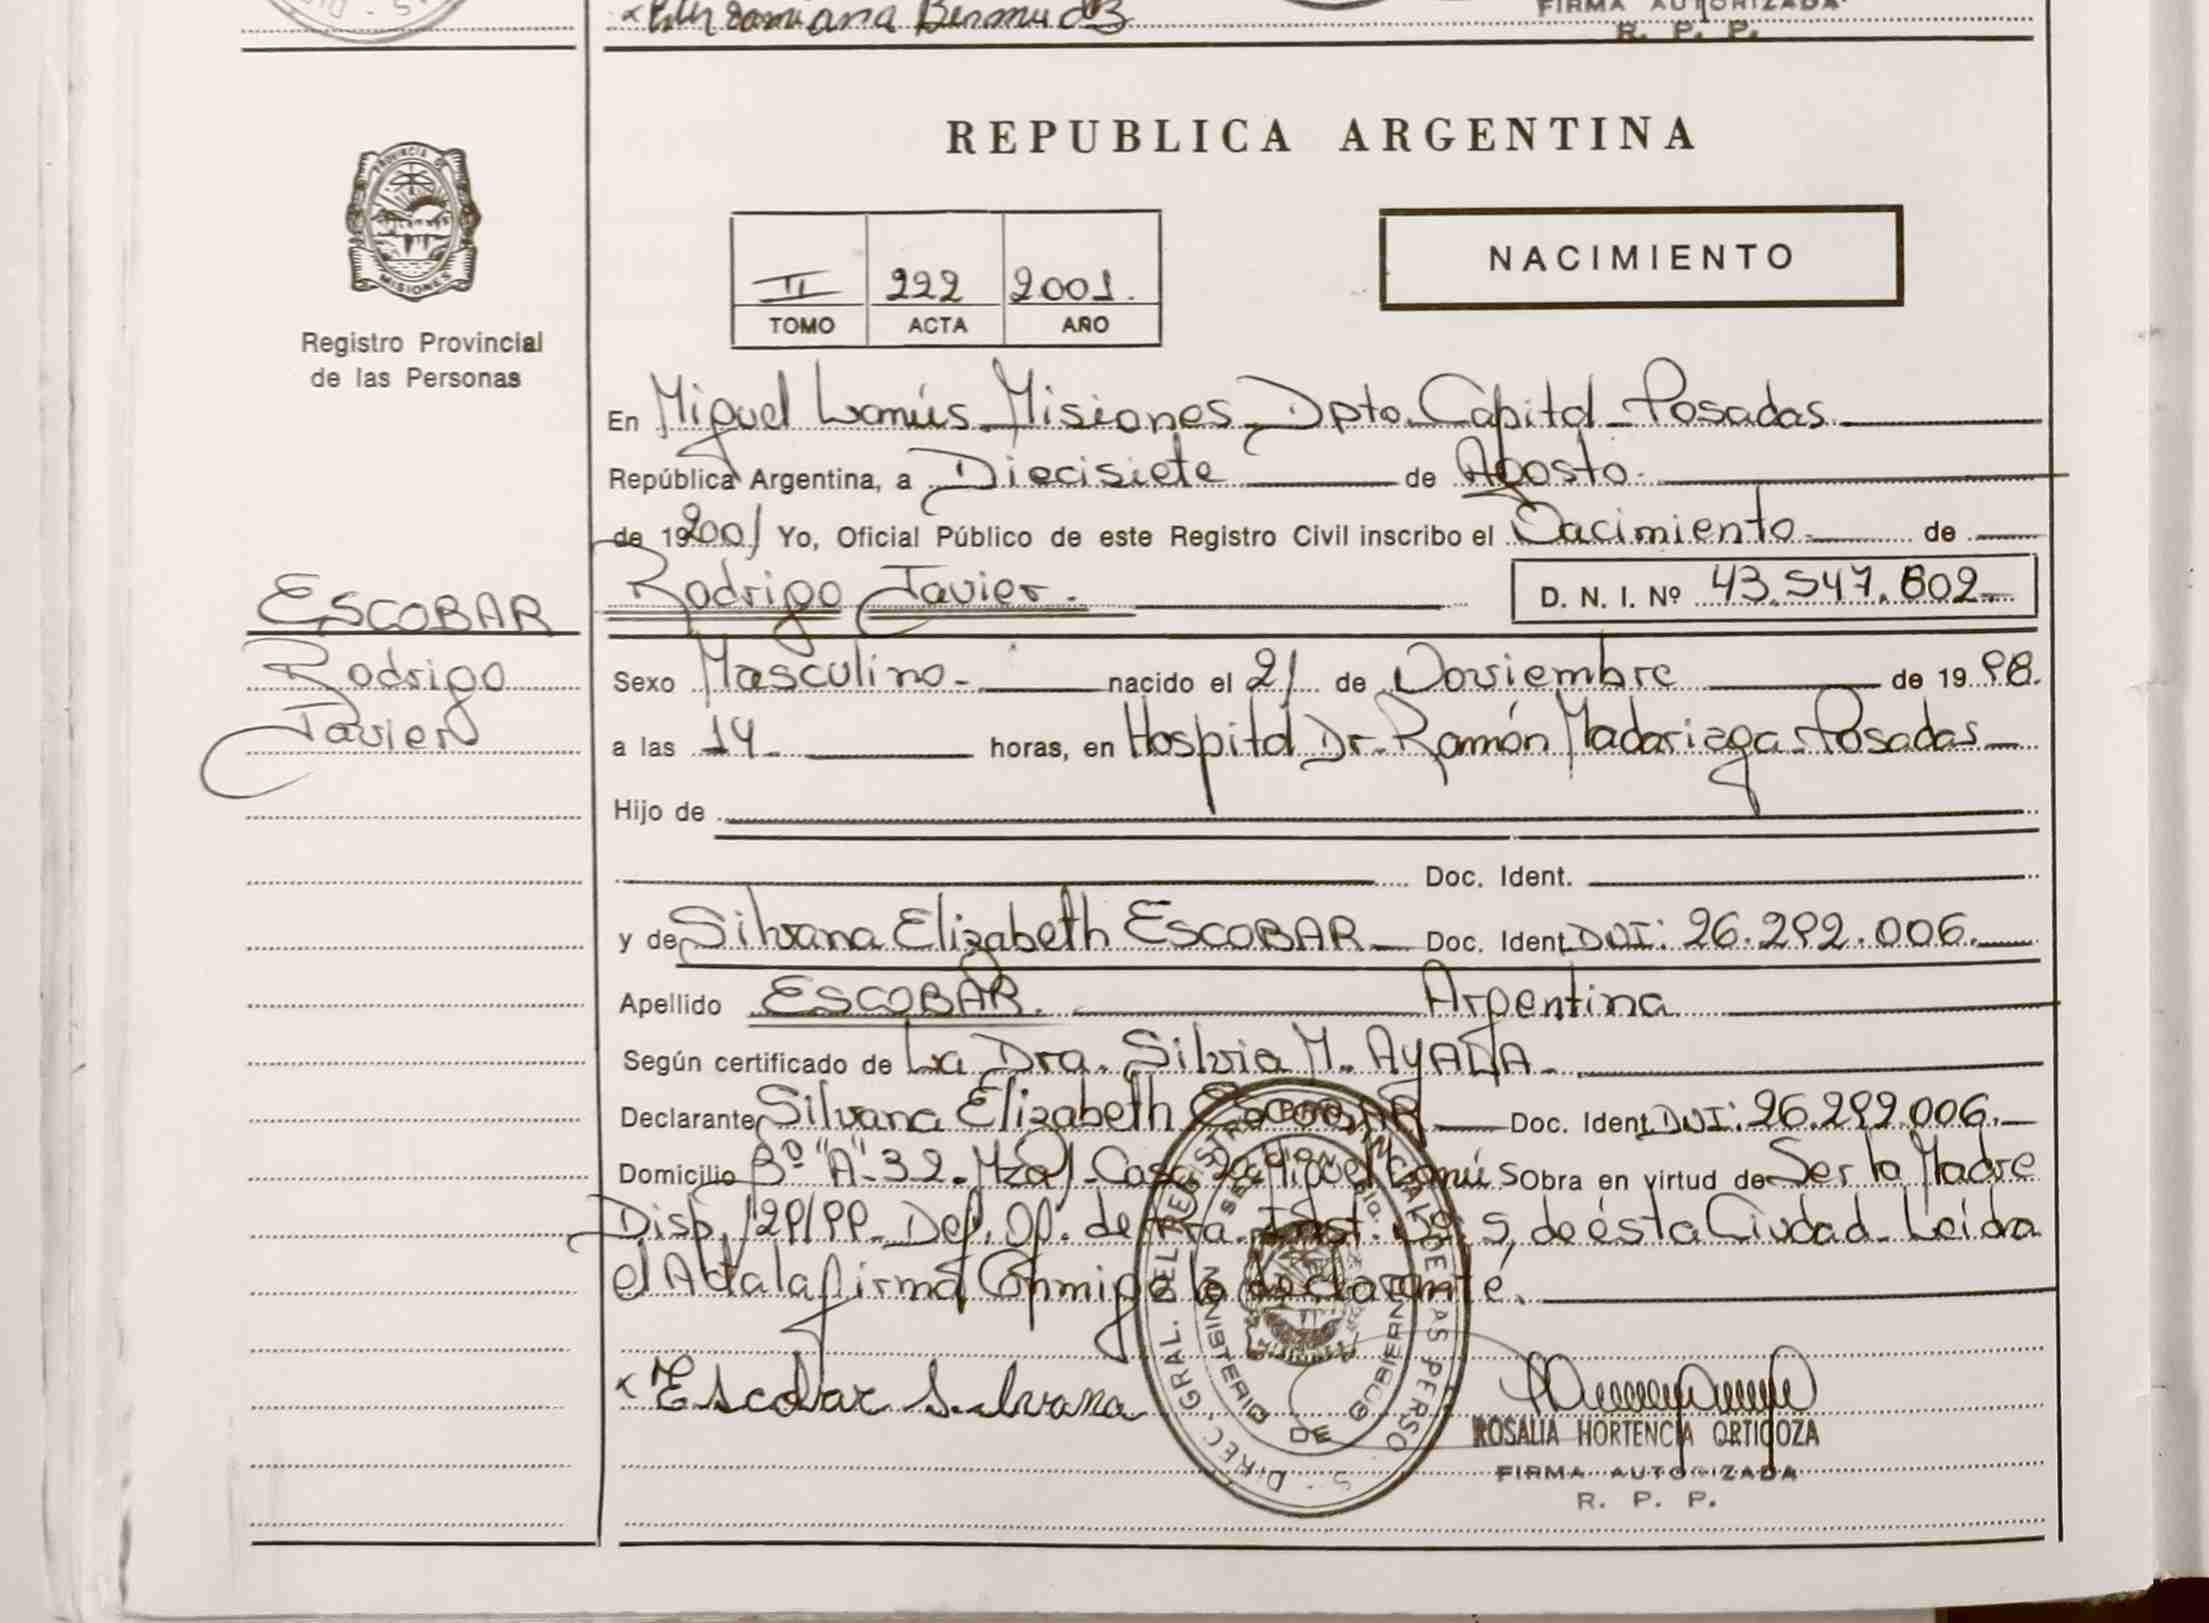 Bermudez
FIRMA AUTORIZADA
R. P. P.
PROVINCIA DE
MISIONES
Registro Provincial
de las Personas
ESCOBAR
Rodrigo
Javier
REPUBLICA ARGENTINA
II 222 2001.
TOMO ACTA AÑO
NACIMIENTO
En Miguel Lanús Misiones Dpto. Capital Posadas
República Argentina, a Diecisiete de Agosto.
de 192001 Yo, Oficial Público de este Registro Civil inscribo el Nacimiento de
Rodrigo Javier. D. N. I. Nº 43.547.802
Sexo Masculino nacido el 21 de Noviembre de 19 98.
a las 14 horas, en Hospital Dr. Ramón Madariaga Posadas
Hijo de
Doc. Ident.
y de Silvana Elizabeth ESCOBAR Doc. Ident. DNI: 26.292.006.
Apellido ESCOBAR. Argentina
Según certificado de La Dra. Silvia M. AYALA
Declarante Silvana Elizabeth ESCOBAR Doc. Ident. DNI: 26.292.006.
Domicilio Bº "A" 32. Mza J. Casa Miguel Lanús Obra en virtud de Ser la Madre
Disp. 129/99 Def. Of. de 1ra. Inst. Nº 5, de ésta Ciudad. Leída
el Acta la firma Conmigo la declarante.
Escobar Silvana
DIREC. GRAL. DEL REGISTRO PROVINCIAL DE LAS PERSONAS
MINISTERIO DE GOBIERNO
ROSALIA HORTENCIA ORTIGOZA
FIRMA AUTORIZADA
R. P. P.